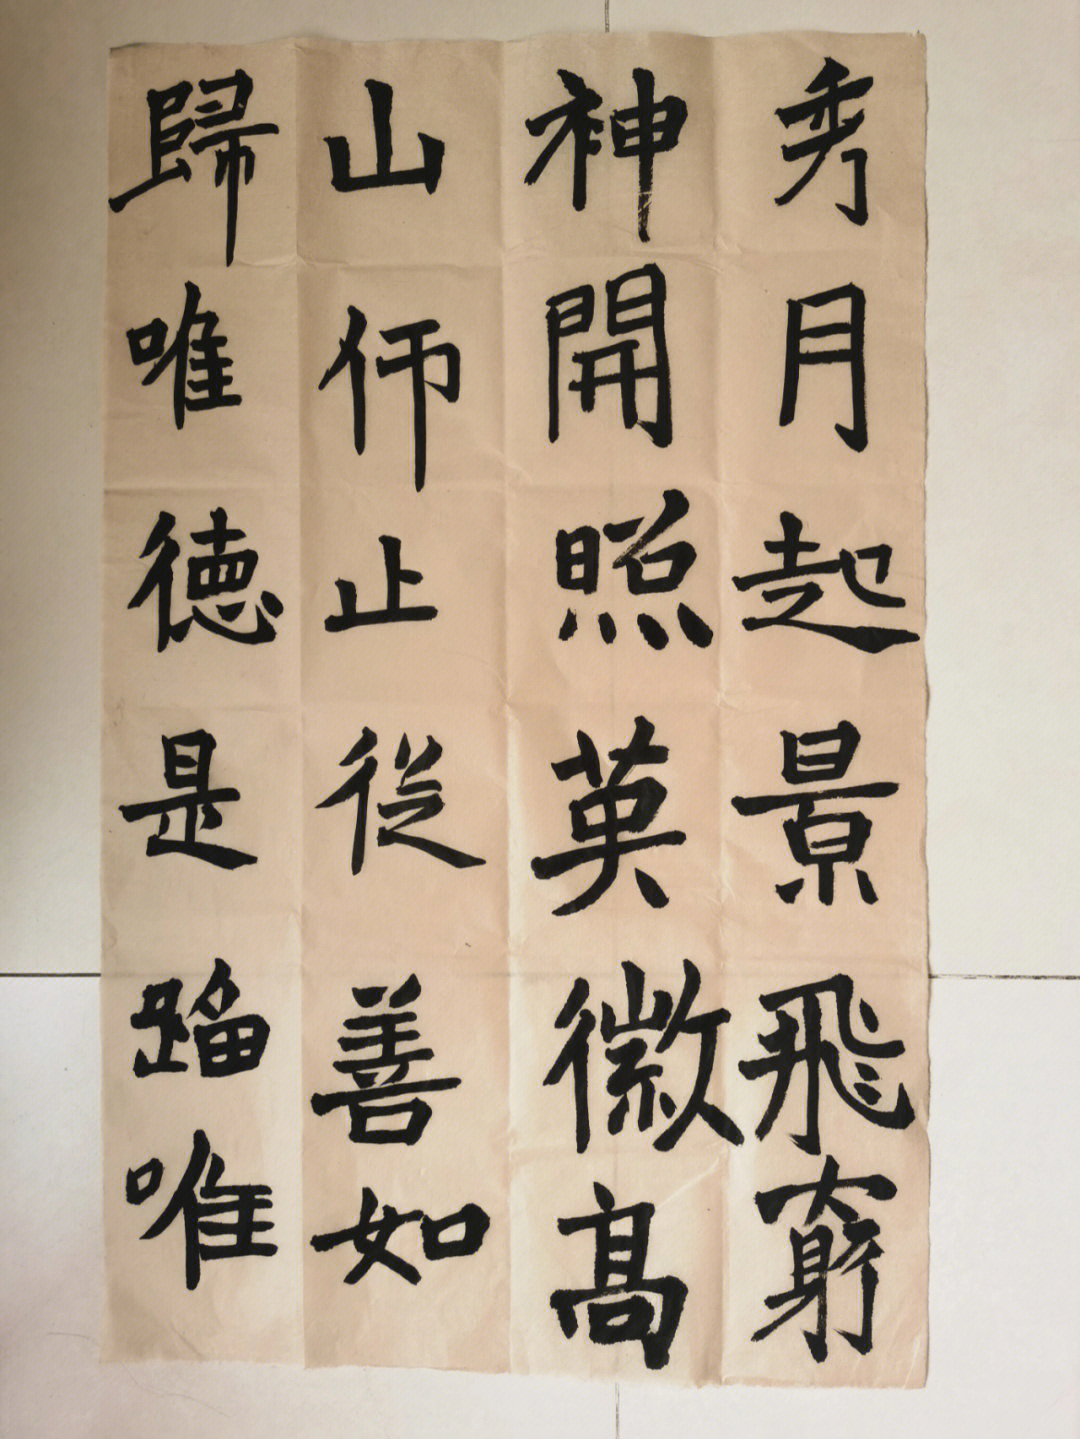 秀月起景飛窮
神開照英徽高
山仰止從善如
歸唯德是蹈唯